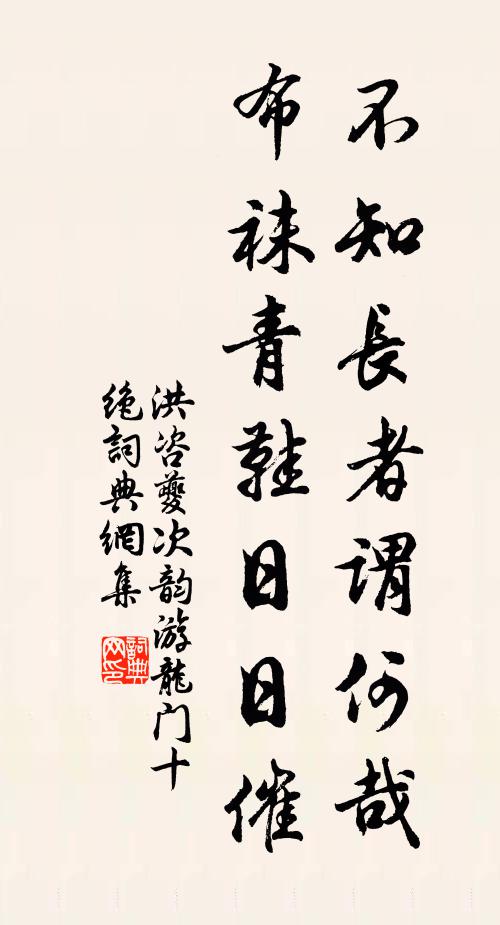 不知長者謂何哉
布袜青鞋日日催
洪咨夔次韵游龍门十
絶詞典網集
詞典
网印